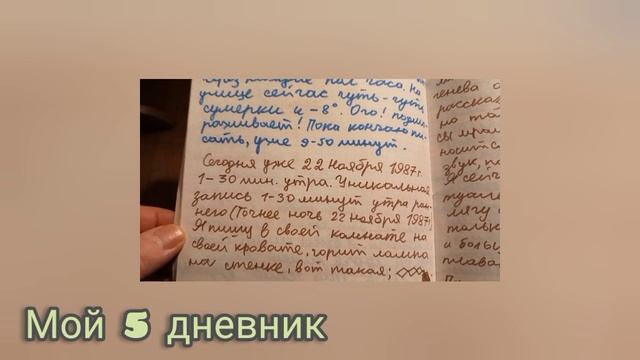 через каждые пол часа. На
улице сейчас чуть-чуть
сумерки и -8°. Ого! подмо-
раживает! Пока кончаю пи-
сать, уже 9-50 минут.
Сегодня уже 22 ноября 1987г.
1-30 мин. утра. Уникальная
запись 1-30 минут утра ран-
него (Точнее ночь 22 ноября 1987)
Я пишу в своей комнате на
своей кровате, горит лампа
на стенке, вот такая;
генева
расска
но та
сы мрам
носит
звук, по
Я сейч
туале
лягу
тольк
и боль
плава
Мой 5 дневник